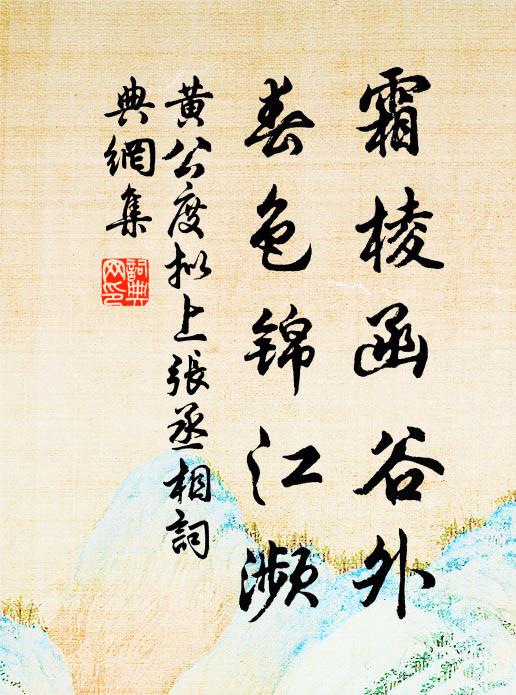 霜棱函谷外
春色锦江濒
黄公度拟上張丞相詞
典網集
詞典网印